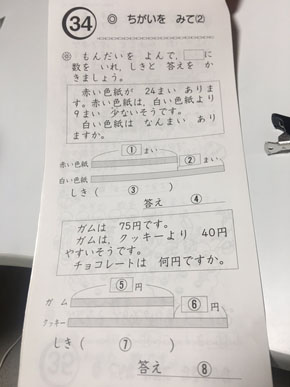 34 ◎ ちがいを みて②
◎ もんだいを よんで、□に
数を いれ、しきと 答えを か
きましょう。
赤い色紙が 24まい ありま
す。赤い色紙は、白い色紙より
9まい 少ないそうです。
白い色紙は なんまい あり
ますか。
① まい
赤い色紙 ② まい
白い色紙
しき( ③ )
答え ④
ガムは 75円です。
ガムは、クッキーより 40円
やすいそうです。
チョコレートは 何円ですか。
⑤ 円
ガム ⑥ 円
クッキー
しき( ⑦ )
答え ⑧